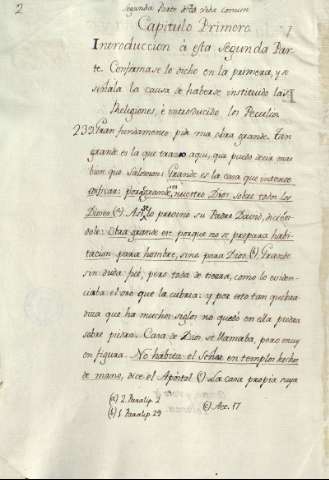 2
Segunda Parte de la vida comun
Capitulo Primero
Introduccion á esta Segunda Par-
te. Confirmase lo dicho en la primera, y se
señala la causa de haberse instituido las
Religiones, é introducido los Peculios
239 Gran fundamento pide una obra grande. tan
grande es la que traigo aqui, que puedo decir mas
bien que Salomon: Grande es la casa que
edificar: porque grande, es nuestro Dios sobre todos los
Dioses (a). Asi lo previno su Padre David, dicien-
dole: Obra grande es: porque no se prepara habi-
tacion para hombre, sino para Dios (b) Grande
sin duda fué, pero toda de tierra, como lo eviden-
ciaba el oro que la cubria: y por esto tan quebra-
diza que ha muchos siglos no quedó en ella piedra
sobre piedra. Casa de Dios se llamaba, pero muy
en figura. No habita el Señor en templos hechos
de mano, dice el Apóstol (c) La casa propia suya
(a) 2. Paralip. 2
(b) 1. Paralip. 29
(c) Act. 17